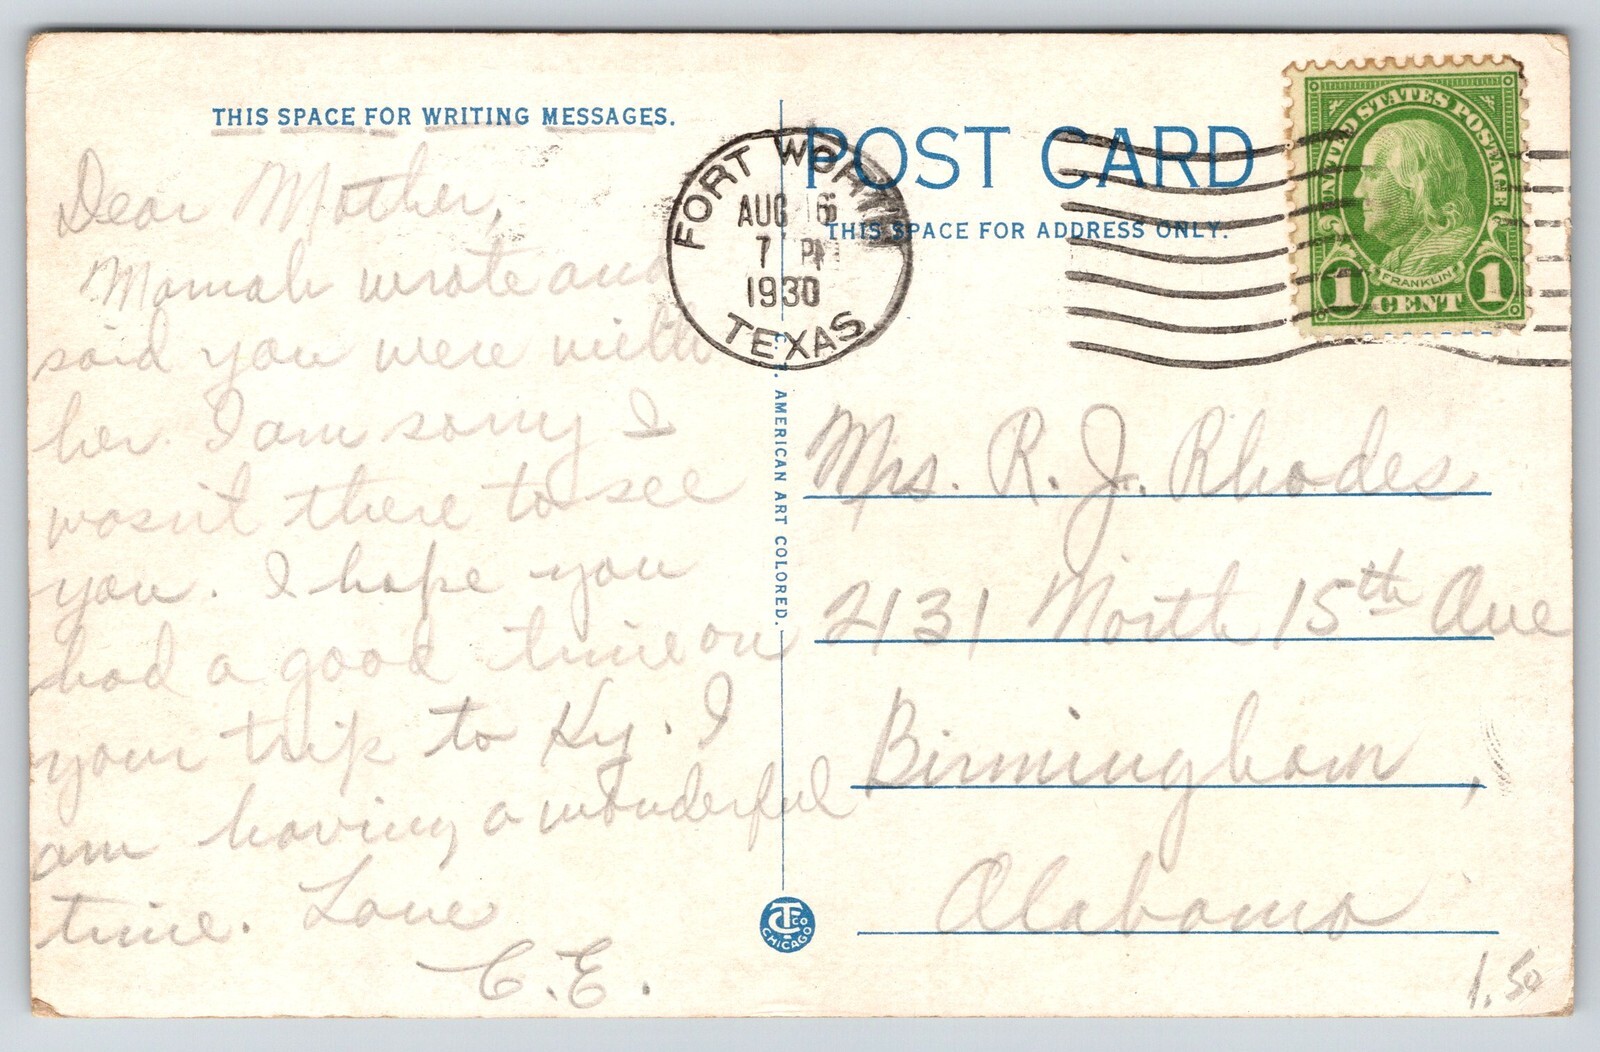 THIS SPACE FOR WRITING MESSAGES.
Dear Mother,
Mamah wrote and
said you were with
her. I am sorry I
wasn't there to see
you. I hope you
had a good time on
your trip to Ky. I
am having a wonderful
time. Love
C.E.
FORT WORTH
AUG 16
7 PM
1930
TEXAS
C. T. AMERICAN ART COLORED.
CTCO
CHICAGO
POST CARD
THIS SPACE FOR ADDRESS ONLY.
UNITED STATES POSTAGE
FRANKLIN
1 CENT 1
Mrs. R. J. Rhodes
2131 North 15th Ave
Birmingham,
Alabama
1.50